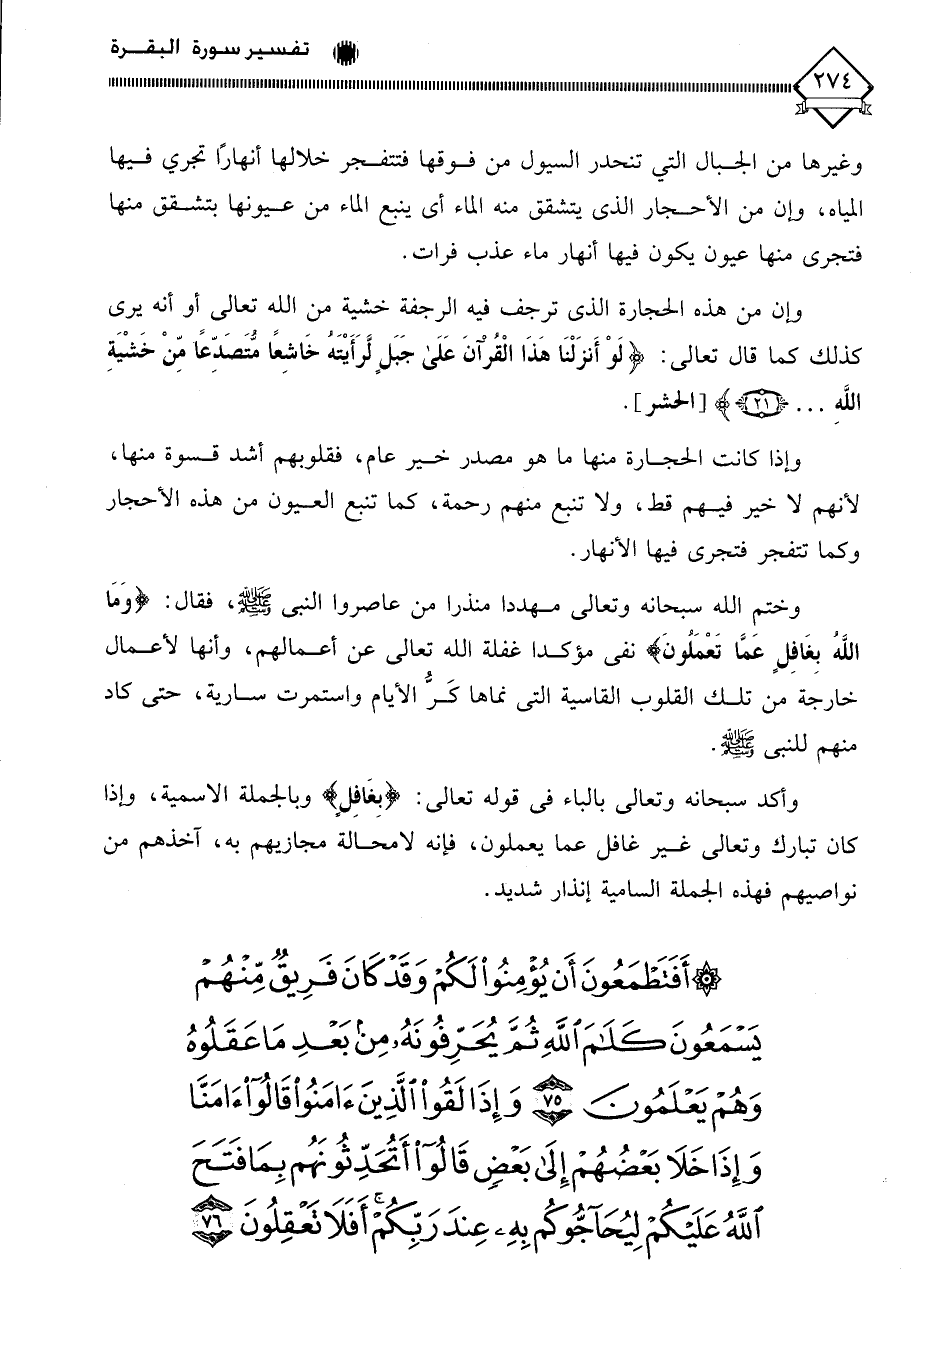 تفسير سورة البقرة
٢٧٤
وغيرها من الجبال التي تنحدر السيول من فوقها فتتفجر خلالها أنهارًا تجري فيها
المياه، وإن من الأحجار الذى يتشقق منه الماء أى ينبع الماء من عيونها بتشقق منها
فتجرى منها عيون يكون فيها أنهار ماء عذب فرات.
وإن من هذه الحجارة الذى ترجف فيه الرجفة خشية من الله تعالى أو أنه يرى
كذلك كما قال تعالى: ﴿لَوْ أَنزَلْنَا هَذَا الْقُرْآنَ عَلَىٰ جَبَلٍ لَّرَأَيْتَهُ خَاشِعاً مُّتَصَدِّعاً مِّنْ خَشْيَةِ
اللَّهِ ... ﴿٢١﴾﴾ [الحشر].
وإذا كانت الحجارة منها ما هو مصدر خير عام، فقلوبهم أشد قسوة منها،
لأنهم لا خير فيهم قط، ولا تنبع منهم رحمة، كما تنبع العيون من هذه الأحجار
وكما تتفجر فتجرى فيها الأنهار.
وختم الله سبحانه وتعالى مهددا منذرا من عاصروا النبى ﷺ، فقال: ﴿وَمَا
اللَّهُ بِغَافِلٍ عَمَّا تَعْمَلُونَ﴾ نفى مؤكدا غفلة الله تعالى عن أعمالهم، وأنها لأعمال
خارجة من تلك القلوب القاسية التى نماها كَرُّ الأيام واستمرت سارية، حتى كاد
منهم للنبى ﷺ.
وأكد سبحانه وتعالى بالباء فى قوله تعالى: ﴿بِغَافِلٍ﴾ وبالجملة الاسمية، وإذا
كان تبارك وتعالى غير غافل عما يعملون، فإنه لامحالة مجازيهم به، آخذهم من
نواصيهم فهذه الجملة السامية إنذار شديد.
۞ أَفَتَطْمَعُونَ أَن يُؤْمِنُوا۟ لَكُمْ وَقَدْ كَانَ فَرِيقٌ مِّنْهُمْ
يَسْمَعُونَ كَلَٰمَ ٱللَّهِ ثُمَّ يُحَرِّفُونَهُۥ مِنۢ بَعْدِ مَا عَقَلُوهُ
وَهُمْ يَعْلَمُونَ ٧٥ وَإِذَا لَقُوا۟ ٱلَّذِينَ ءَامَنُوا۟ قَالُوٓا۟ ءَامَنَّا
وَإِذَا خَلَا بَعْضُهُمْ إِلَىٰ بَعْضٍ قَالُوٓا۟ أَتُحَدِّثُونَهُم بِمَا فَتَحَ
ٱللَّهُ عَلَيْكُمْ لِيُحَآجُّوكُم بِهِۦ عِندَ رَبِّكُمْ ۚ أَفَلَا تَعْقِلُونَ ٧٦